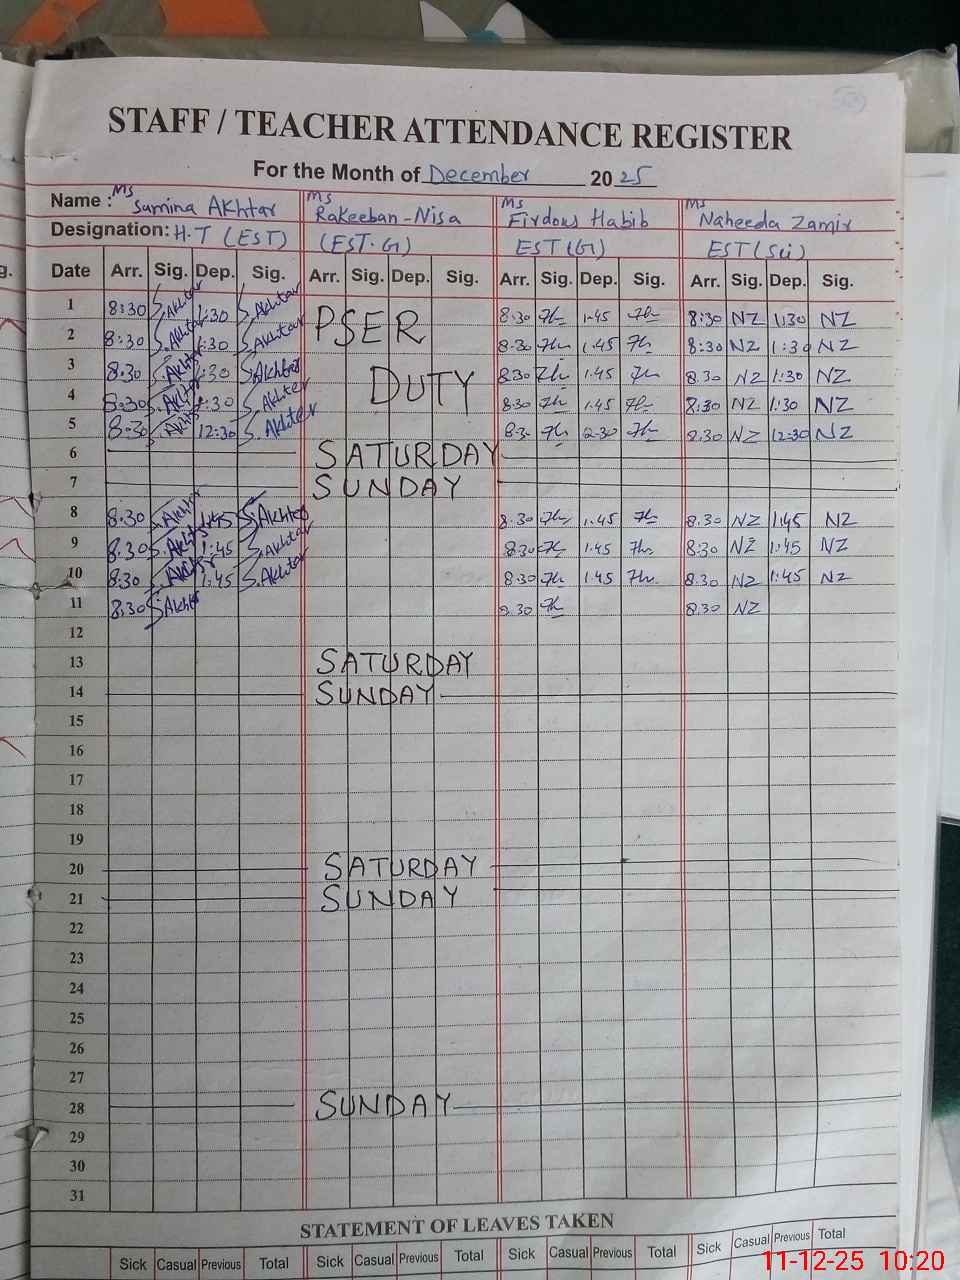 STAFF / TEACHER ATTENDANCE REGISTER
For the Month of December 2025
Name : Ms Samina Akhtar Ms Rakeeban-Nisa Ms Firdous Habib Ms Naheeda Zamir
Designation: H.T (EST) (EST.G) EST(G) EST(Sci)
g. Date Arr. Sig. Dep. Sig. Arr. Sig. Dep. Sig. Arr. Sig. Dep. Sig. Arr. Sig. Dep. Sig.
1 8:30 S.Akhtar 1:30 S.Akhtar PSER 8.30 1.45 8:30 NZ 1:30 NZ
2 8:30 S.Akhtar 1:30 S.Akhtar 8.30 1.45 8:30 NZ 1:30 NZ
3 8:30 S.Akhtar 1:30 S.Akhtar DUTY 8.30 1.45 8.30 NZ 1:30 NZ
4 8:30 S.Akhtar 1:30 S.Akhter 8.30 1.45 8:30 NZ 1:30 NZ
5 8:30 S.Akhtar 12:30 S.Akhter 8.3 12.30 8.30 NZ 12:30 NZ
6 SATURDAY
7 SUNDAY
8 8.30 S.Akhtar 1:45 S.Akhtar 8.30 1.45 8.30 NZ 1:45 NZ
9 8.30 S.Akhtar 1:45 S.Akhtar 8.30 1.45 8:30 NZ 1:45 NZ
10 8:30 S.Akhtar 1:45 S.Akhtar 8.30 1.45 8.30 NZ 1:45 NZ
11 8:30 S.Akhtar 8.30 8.30 NZ
12
13 SATURDAY
14 SUNDAY
15
16
17
18
19
20 SATURDAY
21 SUNDAY
22
23
24
25
26
27
28 SUNDAY
29
30
31
STATEMENT OF LEAVES TAKEN
Sick Casual Previous Total Sick Casual Previous Total Sick Casual Previous Total Sick Casual Previous Total
11-12-25 10:20